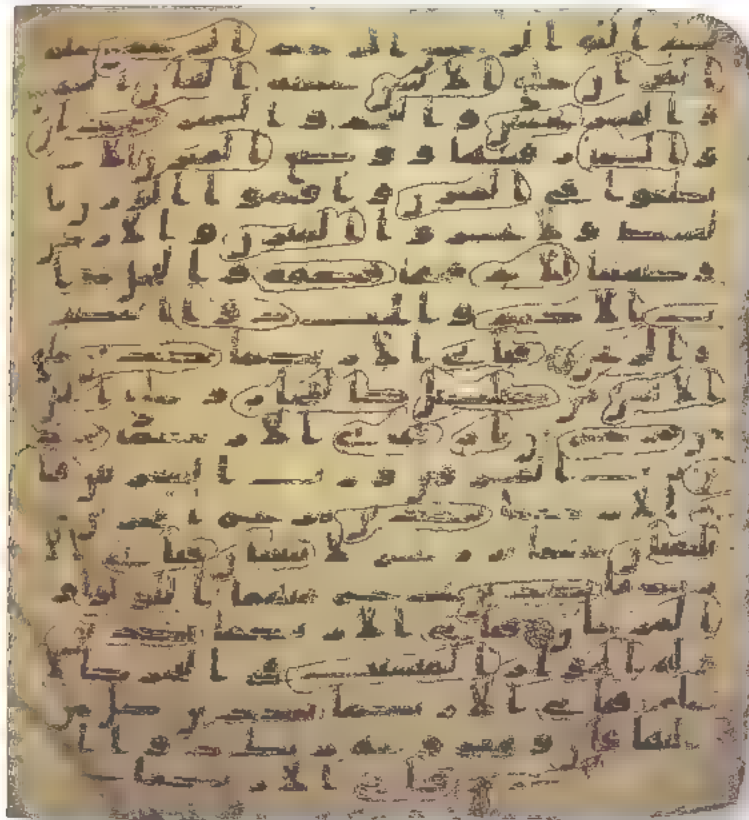 بسم الله الرحمن الرحيم الرحمن علم
القران خلق الانسن علمه البين
الشمس والقمر بحسبن والنجم والشجر يسجدان
والسما رفعها ووضع الميزن الا
تطغوا في الميزن واقيموا الوزن با
لقسط ولا تخسروا الميزن والارض
وضعها للانم فيها فكهة والنخل ذا
ت الاكمم والحب ذو العصف
والريحن فباي الا ربكما تكذبن خلق
الانسن من صلصل كالفخار وخلق الجان
من مرج من نار فباي الا ربكما تكذبن
رب المشرقين ورب المغربين فبا
ي الا ربكما تكذبن مرج البحرين
يلتقين بينهما برزخ لا يبغين فباي الا
ربكما تكذبن يخرج منهما اللولو
والمرجن فباي الا ربكما تكذبن وله
الجوار المنشات في البحر كالا
علم فباي الا ربكما تكذبن كل من
عليها فان ويبقى وجه ربك ذو الجلل
فباي الا ربكما